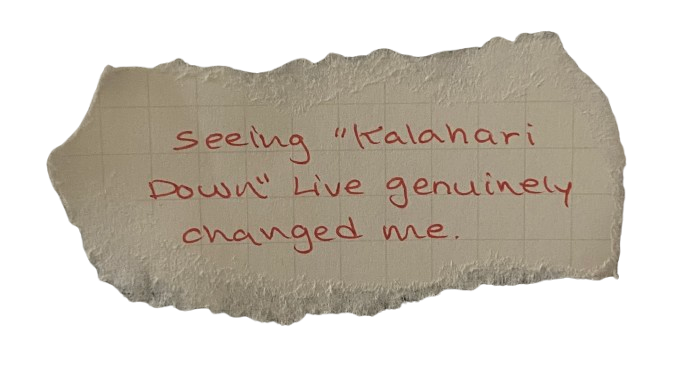 Seeing "Kalahari
Down" Live genuinely
changed me.